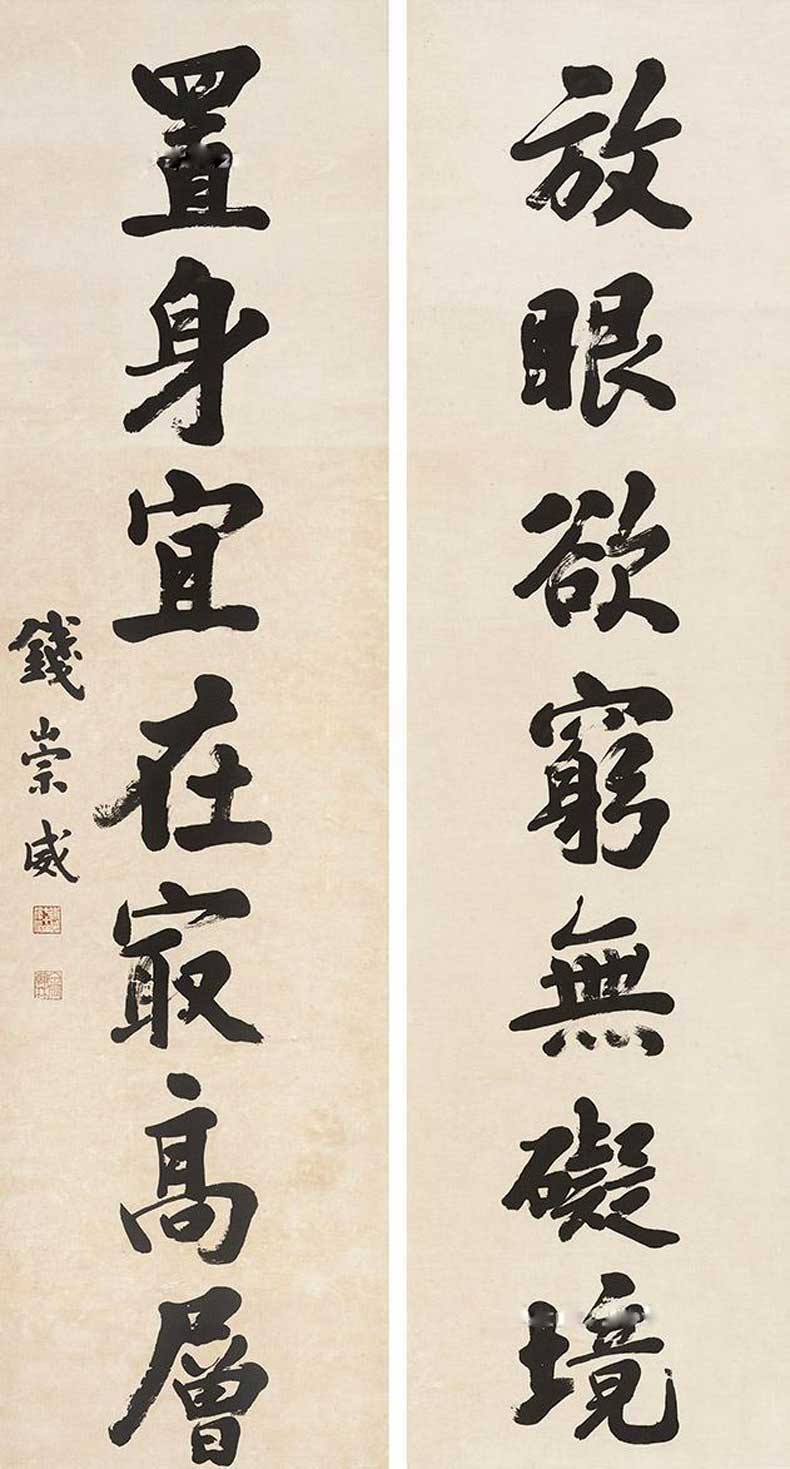 放眼欲窮無礙境
置身宜在冣高層
錢崇威